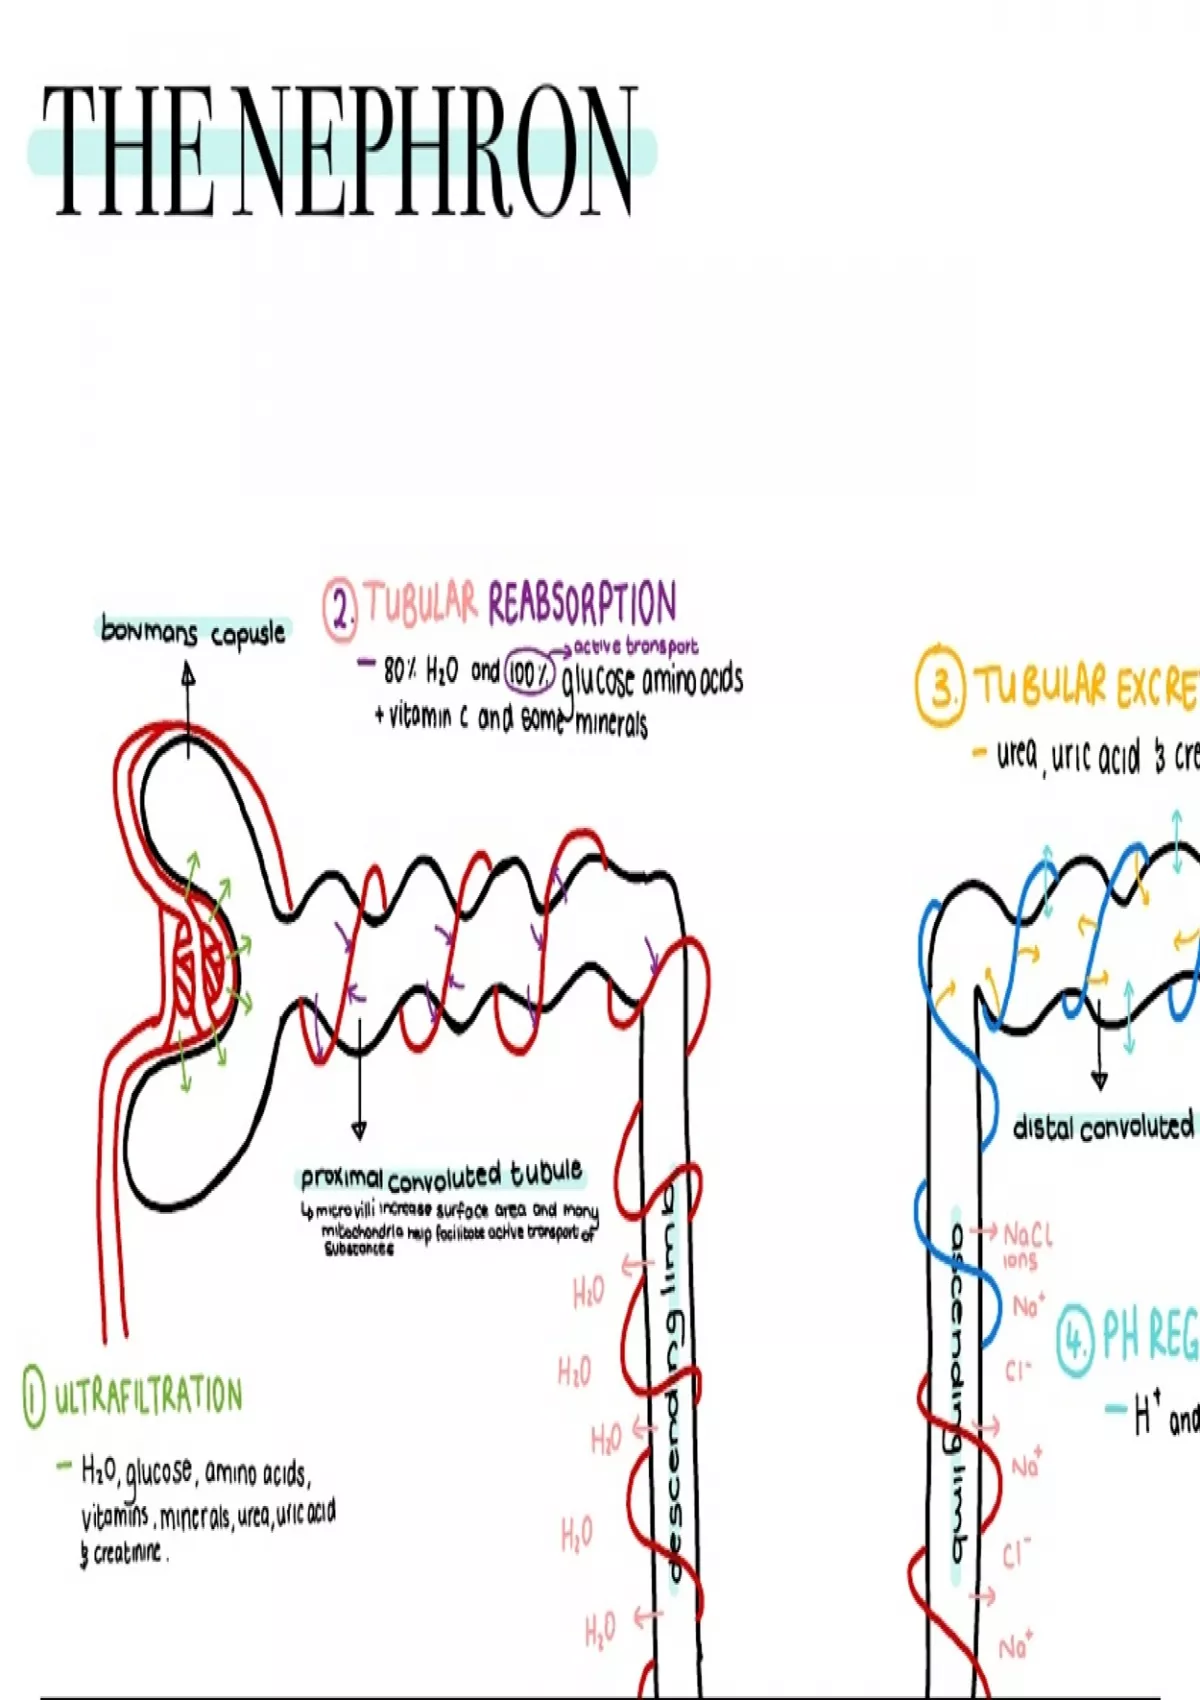 THE NEPHRON
bowmans capusle
2. TUBULAR REABSORPTION
→ active transport
- 80% H₂O and 100% glucose amino acids
+ vitamin c and some minerals
3. TUBULAR EXCRE
- urea, uric acid & cre
proximal convoluted tubule
↳ microvilli increase surface area and many
mitochondria help facilitate active transport of
substances
distal convoluted
descending limb
H₂O
H₂O
H₂O
H₂O
H₂O
ascending limb
NaCl
ions
Na⁺
Cl⁻
Na⁺
Cl⁻
Na⁺
4. PH REG
- H⁺ and
1 ULTRAFILTRATION
- H₂O, glucose, amino acids,
vitamins, minerals, urea, uric acid
& creatinine.